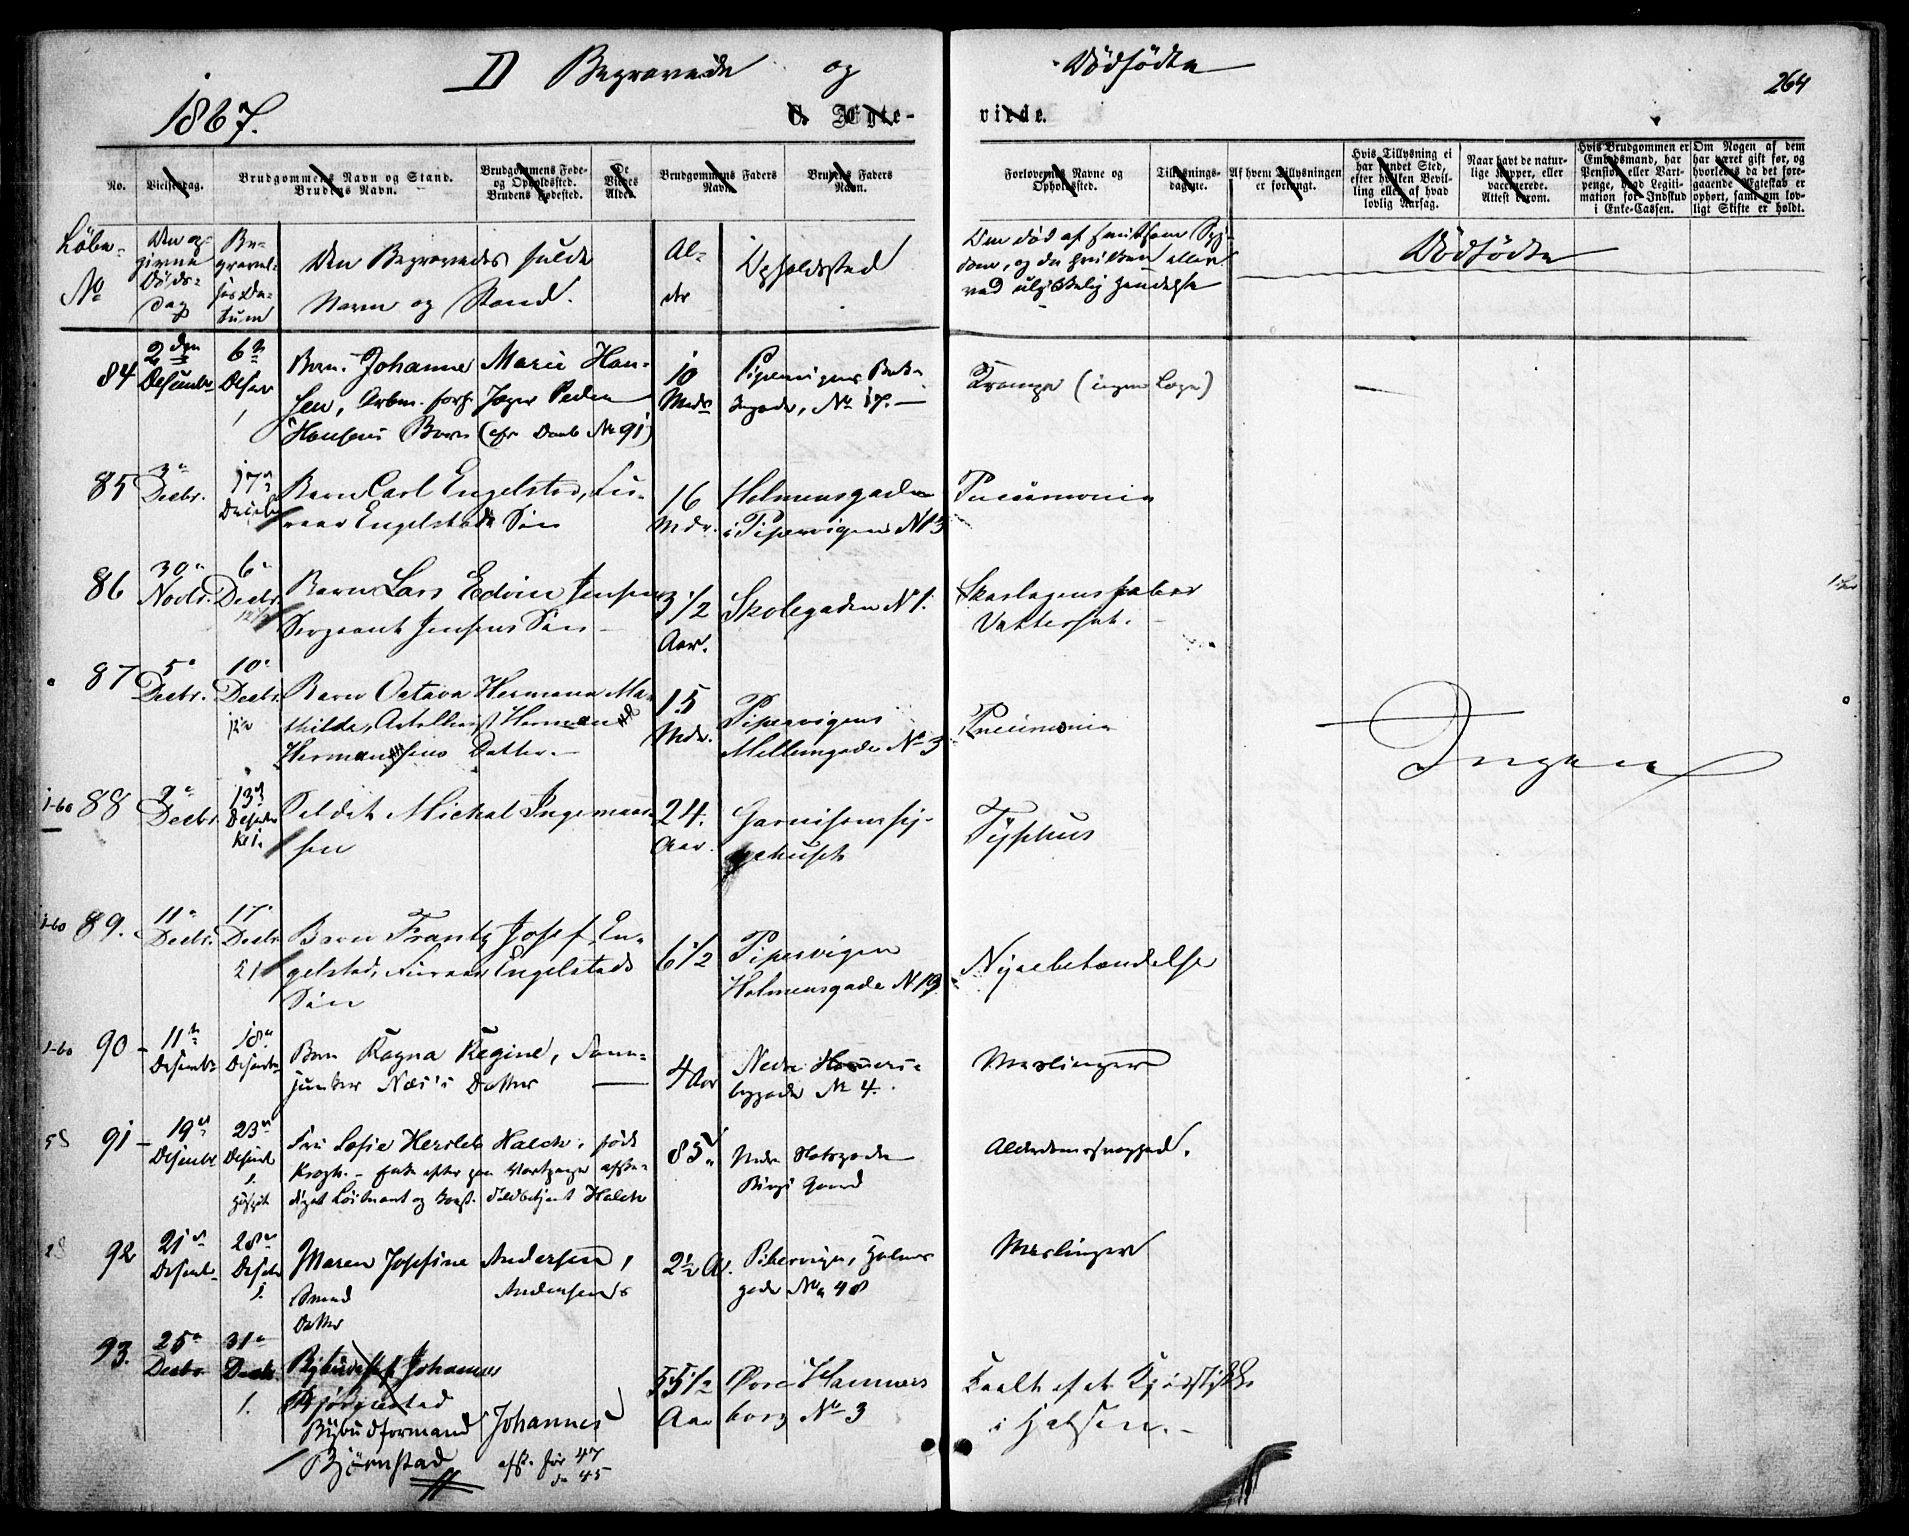 1867.
D Begravede og Dödfödte
264
C. Ægte- viede.
No.
Vielsesdag.
Brudgommens Navn og Stand.
Brudens Navn.
Brudgommens Føde-
og Opholdssted.
Brudens Fødested.
De
Viedes
Alder.
Brudgommens Faders
Navn.
Brudens Faders
Navn.
Forlovernes Navne og
Opholdssted.
Tillysnings-
dagene.
Af hvem Tillysningen
er forlangt.
Hvis Tillysning ei
har fundet Sted,
efter hvilken Bevil-
ling eller af hvad
lovlig Aarsag.
Naar havt de natur-
lige Kopper, eller
vaccinerede.
Attest herom.
Hvis Brudgommen er
Embedsmand, har
Pension eller Vart-
penge, hvad Legiti-
mation for Indskud
i Enke-Cassen.
Om Nogen af dem
har været gift før, og
hvorledes da det fore-
gaaende Ægteskab er
ophørt, samt om lov-
ligt Skifte er holdt.
Löbe-
No
Den op-
givne
Döds-
dag
Be-
gravel-
ses Da-
tum
Den Begravedes fulde
Navn og Stand.
Al-
der
Opholdssted
Om död af smitsom Syg-
dom, og da hvilken eller
ved ulykkelig Hendelse
Dödfödte
84 2den Desember 6te Desbr
Barn Johanne Marie Han-
sen, Arbm. forh. Jæger Peder
Hansens Barn (cfr Daab No 91)
10
Mdr
Pipervigens Bak-
kegade, No 17. —
Krampe (ingen Læge)
85 3 Decbr. 17 Decbr
Barn Carl Engelstad, Fu-
raar Engelstads Sön
16
Mdr.
Holmensgaden
i Pipervigen N 13
Pneumonia
86 30 Novbr. 6 Decbr.
Barn Lars Edvin Jensen
Sergeant Jensens Sön
3 1/2
Aar.
Skolegaden N 1.
Skarlagensfeber
Vattersot.
87 5 Decbr. 10 Decbr.
Barn Octava Hermana Ma-
thilde, Artellerist Herman
Hermansens Datter. —
15
Mdr.
Pipervigens
Mellemgade No 3
Pneumonia
Ingen
1-60 88 9 Decbr. 13 Desember
Soldat Michal Ingemann-
sen
24.
Aar.
Garnisonssy-
gehuset
Typhus
1-60 89. 11 Decbr. 17 Decbr
Barn Frantz Josef En-
gelstad, Furaar Engelstads
Sön
6 1/2
Pipervigen
Holmensgade N 13
Nyrebetændelse
1-60 90 11te Desembr 18 Desembr
Barn Ragna Regine, Fane-
junker Næs's Datter
4 Aar
Nedre Hammers-
borggade No 4.
Meslinger
58 91 19 Desembr 23 Desemb
Fru Sofie Hersleb Halck, född
Krogh. — Enke efter pen. Vartpenge afske-
diget Löitnant og Const. Toldbetjent Halck
85
Nedre Slotsgade
Rings Gaard
Alderdomssvaghed.
92 21 Desemb. 28 Desbr
Maren Josefine Andersen,
Smed Andersens
Datter
2 1/2 A.
Pibervigen, Holmens
gade No 48
Meslinger
93. 25 Decbr 31 Decbr.
Bybudsf. Johannes
Björnstad
Bybudformand Johannes
Björnstad
afsk. för 47
do 45
55 1/2
Aar
Övre Hammers
borg No 3
Qvalt af et Kjödstykke
i Halsen. —